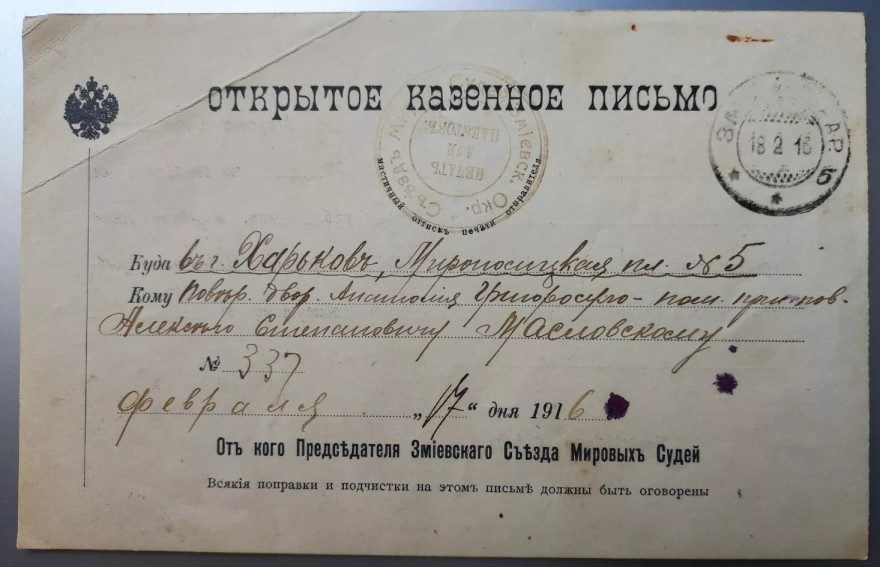 ОТКРЫТОЕ КАЗЕННОЕ ПИСЬМО
Съѣздъ Окр.
ПЕЧАТЬ
ДЛЯ
ПАКЕТОВЪ
мастичный оттискъ печати отправителя
18 2 16
5
Куда въ г. Харьковъ, Мироносицкая пл. № 5
Кому Повѣр. двор. пом. прис. пов.
Алексѣю Степановичу Масловскому
№ 337
февраля „17“ дня 1916
Отъ кого Предсѣдателя Зміевскаго Съѣзда Мировыхъ Судей
Всякія поправки и подчистки на этомъ письмѣ должны быть оговорены